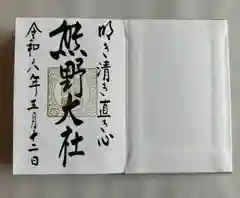 明き清き直き心
熊野大社
令和八年三月十二日